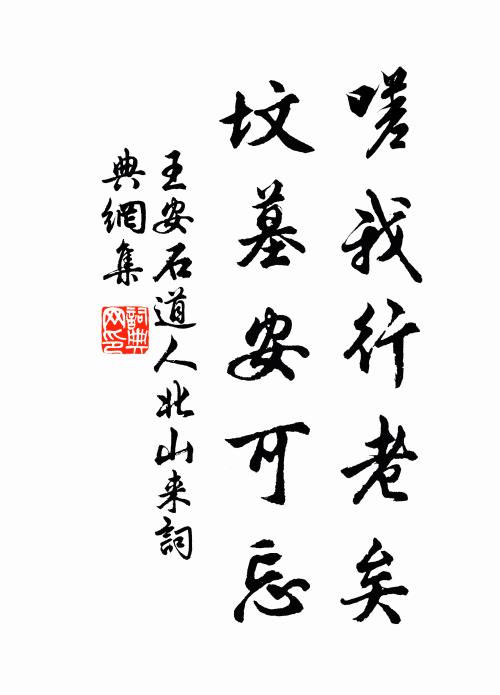 嗟我行老矣
坟墓安可忘
王安石道人北山来詞
典網集
詞典网印